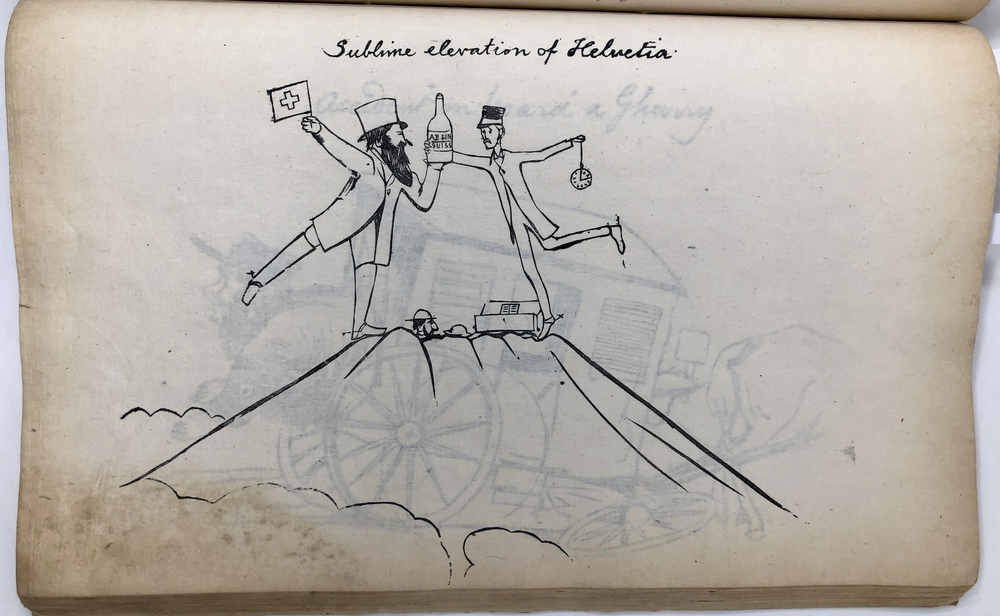 Sublime elevation of Helvetia.
ABSIN
SUISS
a Gharry